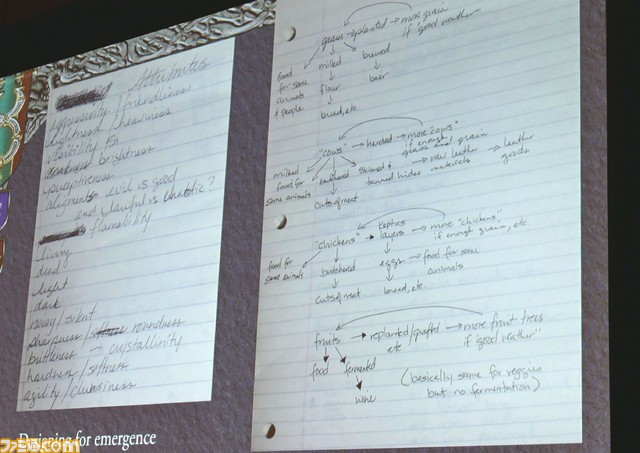 Attributes
aggressivity / friendliness
lightness / heaviness
visibility to
brightness
perceptiveness
alignment evil vs good
and lawful vs chaotic?
flamability
living
dead
light
dark
noisy / silent
sharpness / roundness
brittleness – crystallinity
hardness / softness
agility / clumsiness
grain → planted → more grain
if "good weather"
food
for some
animals
& people
milled
brewed
flour
beer
bread, etc.
"cows" → herded → more "cows"
if enough
grass and grain
milked
food for
some animals
butchered
skinned &
tanned hides
raw leather
materials
leather
goods
cuts of meat
"chickens" → kept as
layers → more "chickens",
if enough grain, etc.
food for
some animals
butchered
eggs → food for some
animals
cuts of meat
bread, etc
fruits → replanted/grafted → more fruit trees
etc
if "good weather"
food
fermented
wine
(basically same for veggies
but no fermentation)
for emergence
ファミ通.com